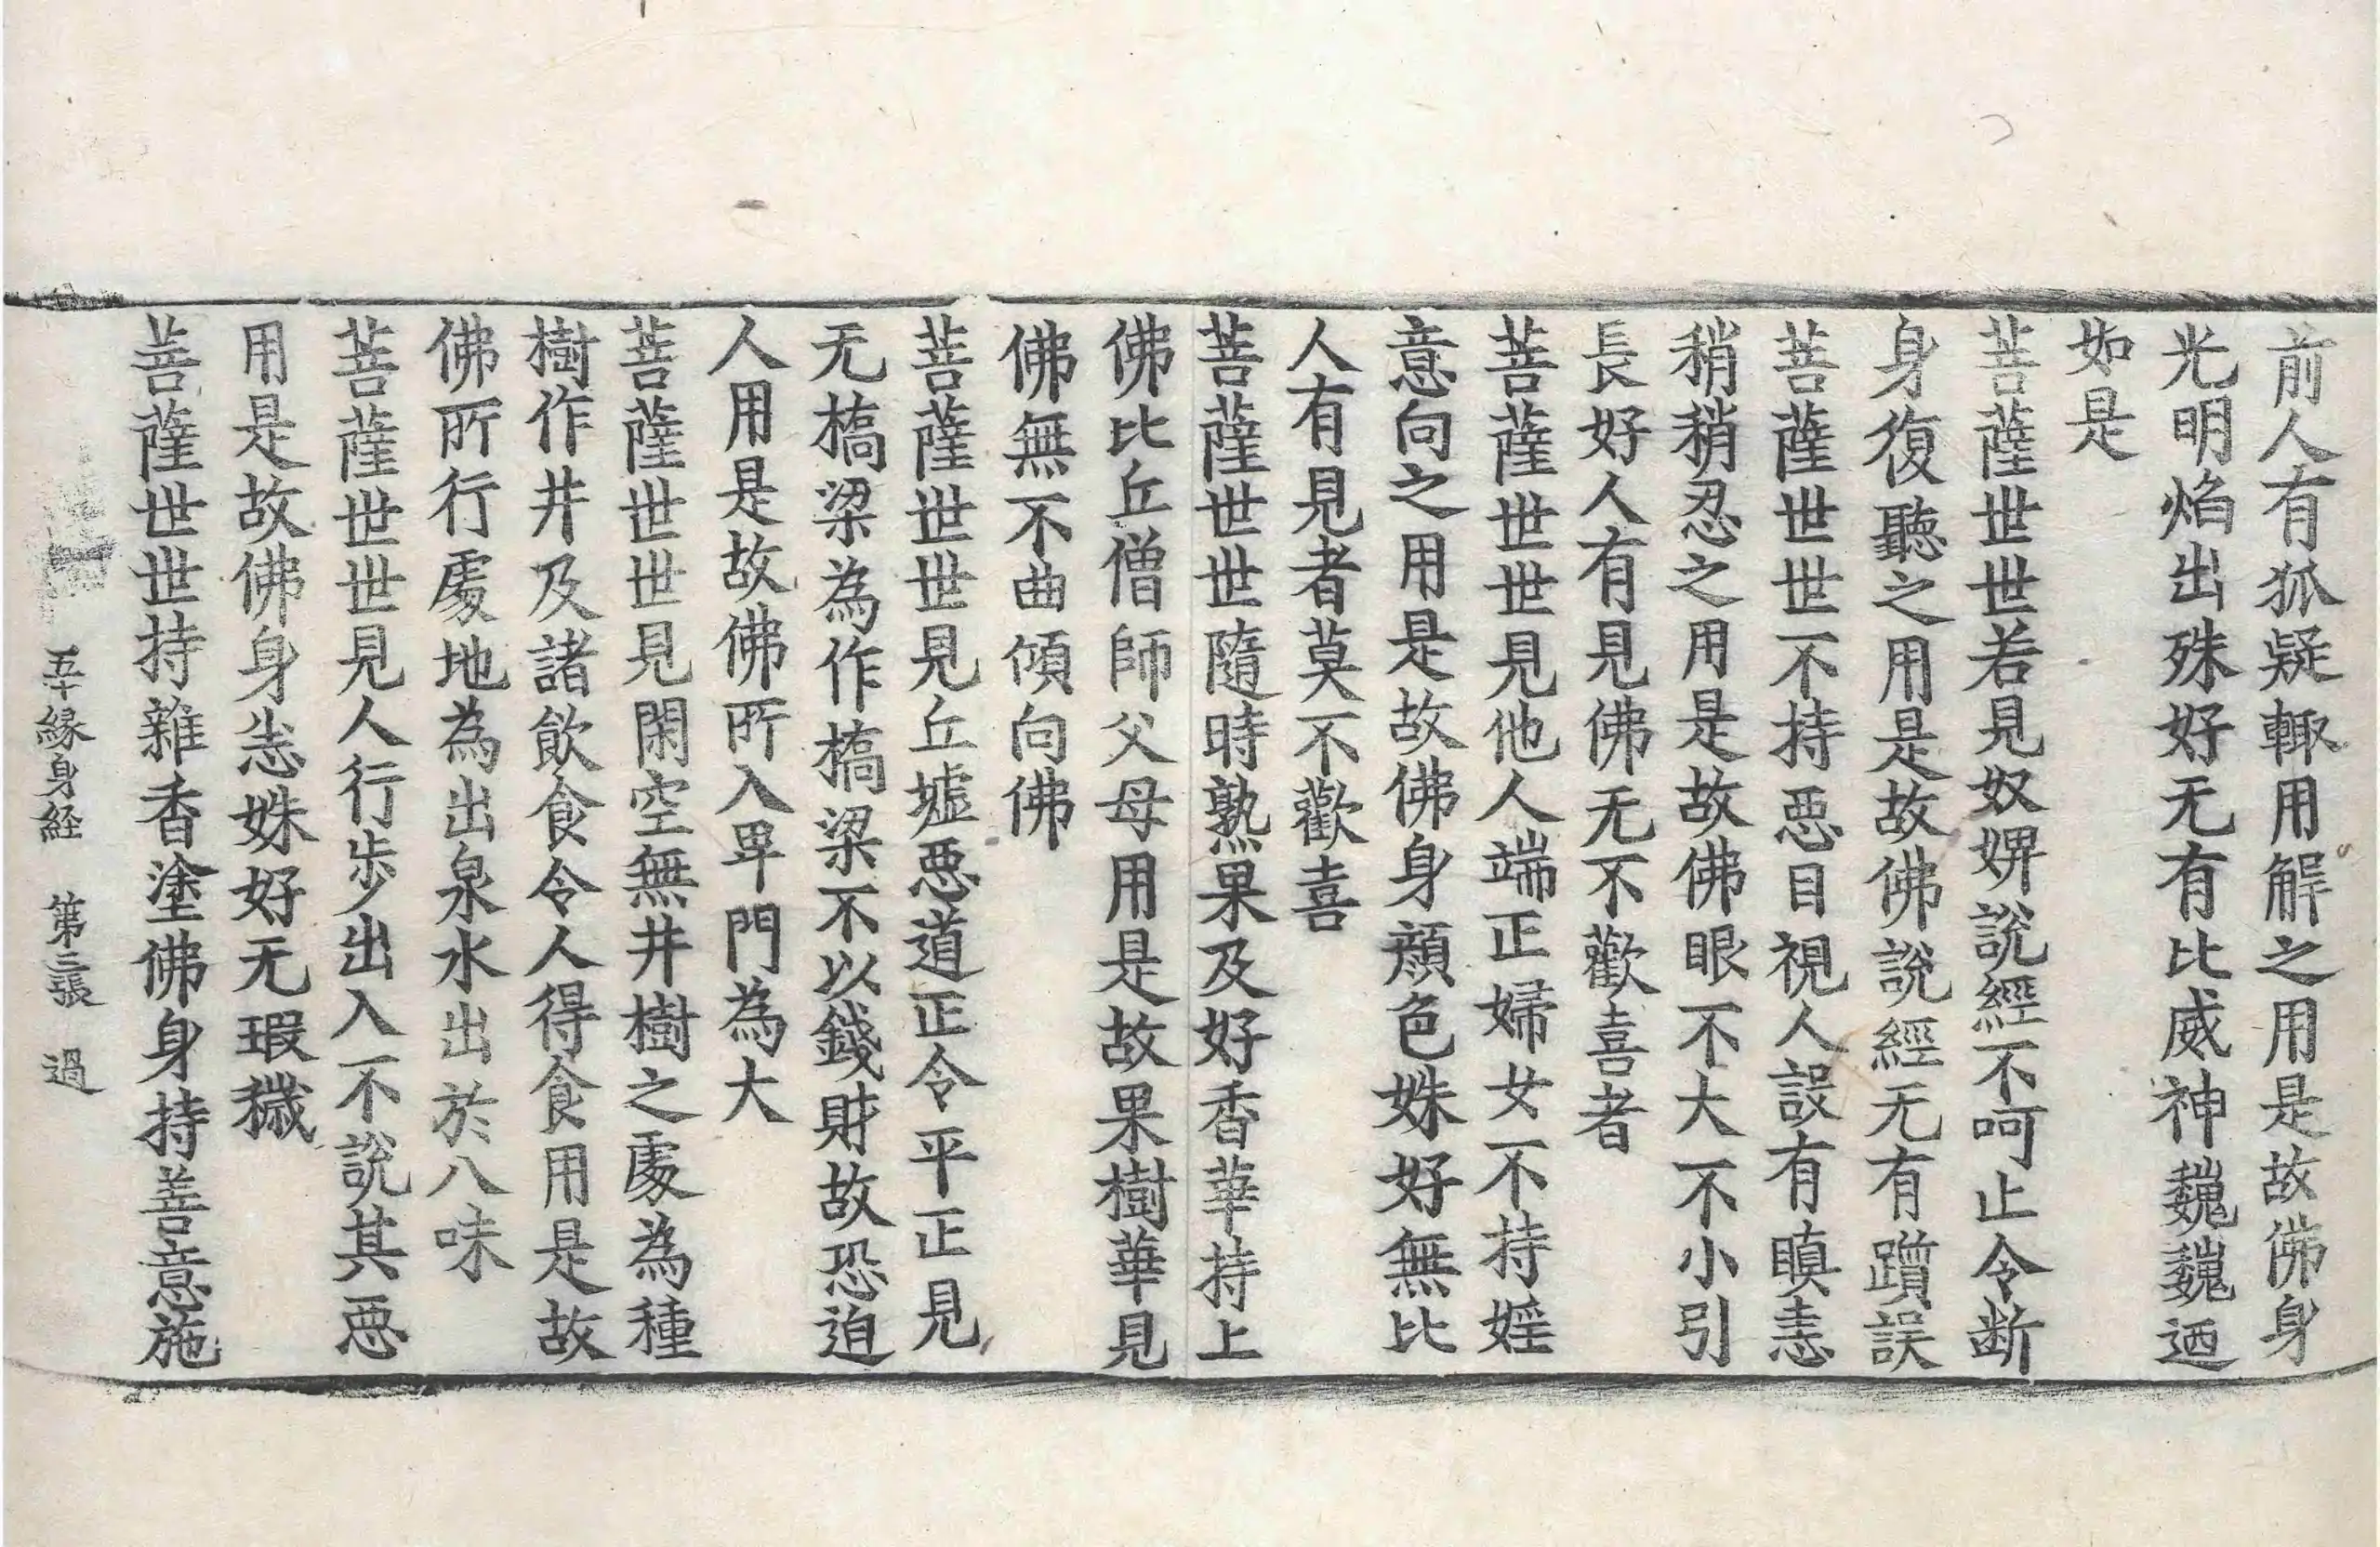 前人有狐疑輙用解之用是故佛身
光明焰出殊好无有比威神巍巍迺
如是
菩薩世世若見奴婢說經不呵止令断
身復聽之用是故佛說經无有躓誤
菩薩世世不持惡目視人設有瞋恚
稍稍忍之用是故佛眼不大不小引
長好人有見佛无不歡喜者
菩薩世世見他人端正婦女不持婬
意向之用是故佛身顏色姝好無比
人有見者莫不歡喜
菩薩世世隨時熟果及好香華持上
佛比丘僧師父母用是故果樹華見
佛無不曲傾向佛
菩薩世世見丘墟惡道正令平正見
无橋梁為作橋梁不以錢財故恐迫
人用是故佛所入卑門為大
菩薩世世見閑空無井樹之處為種
樹作井及諸飲食令人得食用是故
佛所行處地為出泉水出於八味
菩薩世世見人行步出入不說其惡
用是故佛身恙姝好无瑕穢
菩薩世世持雜香塗佛身持善意施
五十緣身経　第三張　過